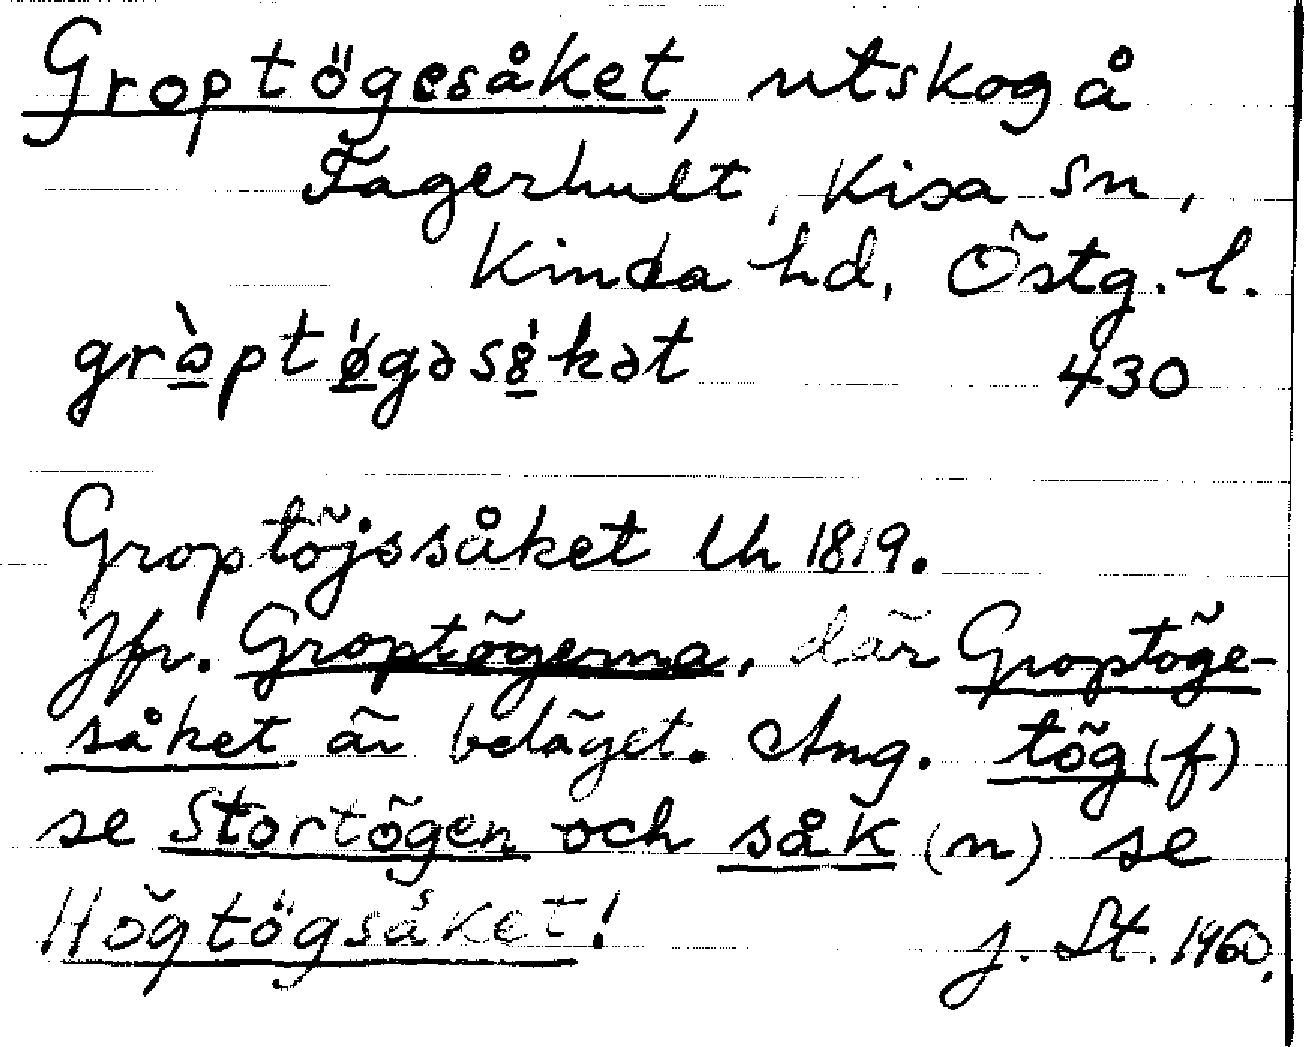 Groptögesåket, utskog å
Fagerhult, Kisa sn,
Kinda hd, Östg. l.
grὼptǿgəsȣ́kət 430
Groptöjssåket Uh 1819.
Jfr. Groptögerna, där Groptöge-
såket är beläget. Ang. tög (f)
se Stortögen och såk (n) se
Högtögsåket! J. St. 1960.